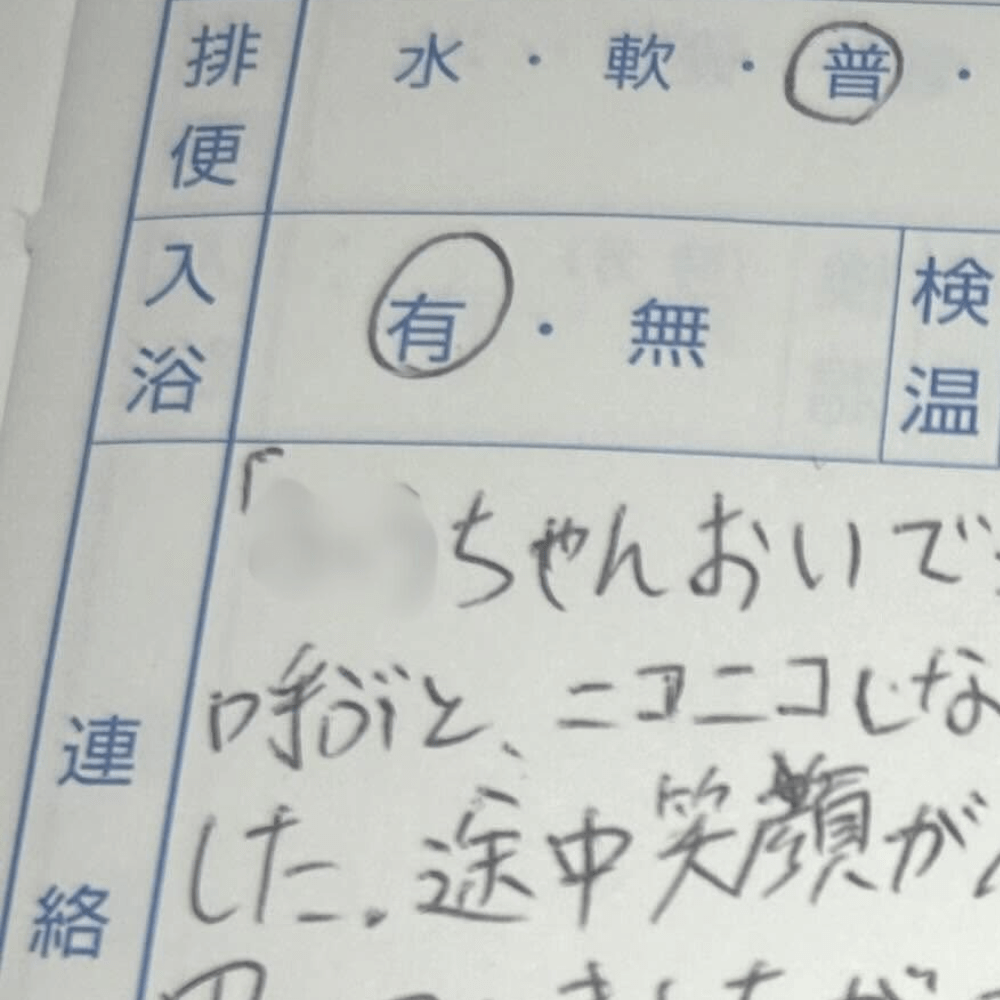 排便 水・軟・普・
入浴 有・無 検温
連絡
「 ちゃんおいで
呼ぶと、ニコニコしな
した。途中笑顔が